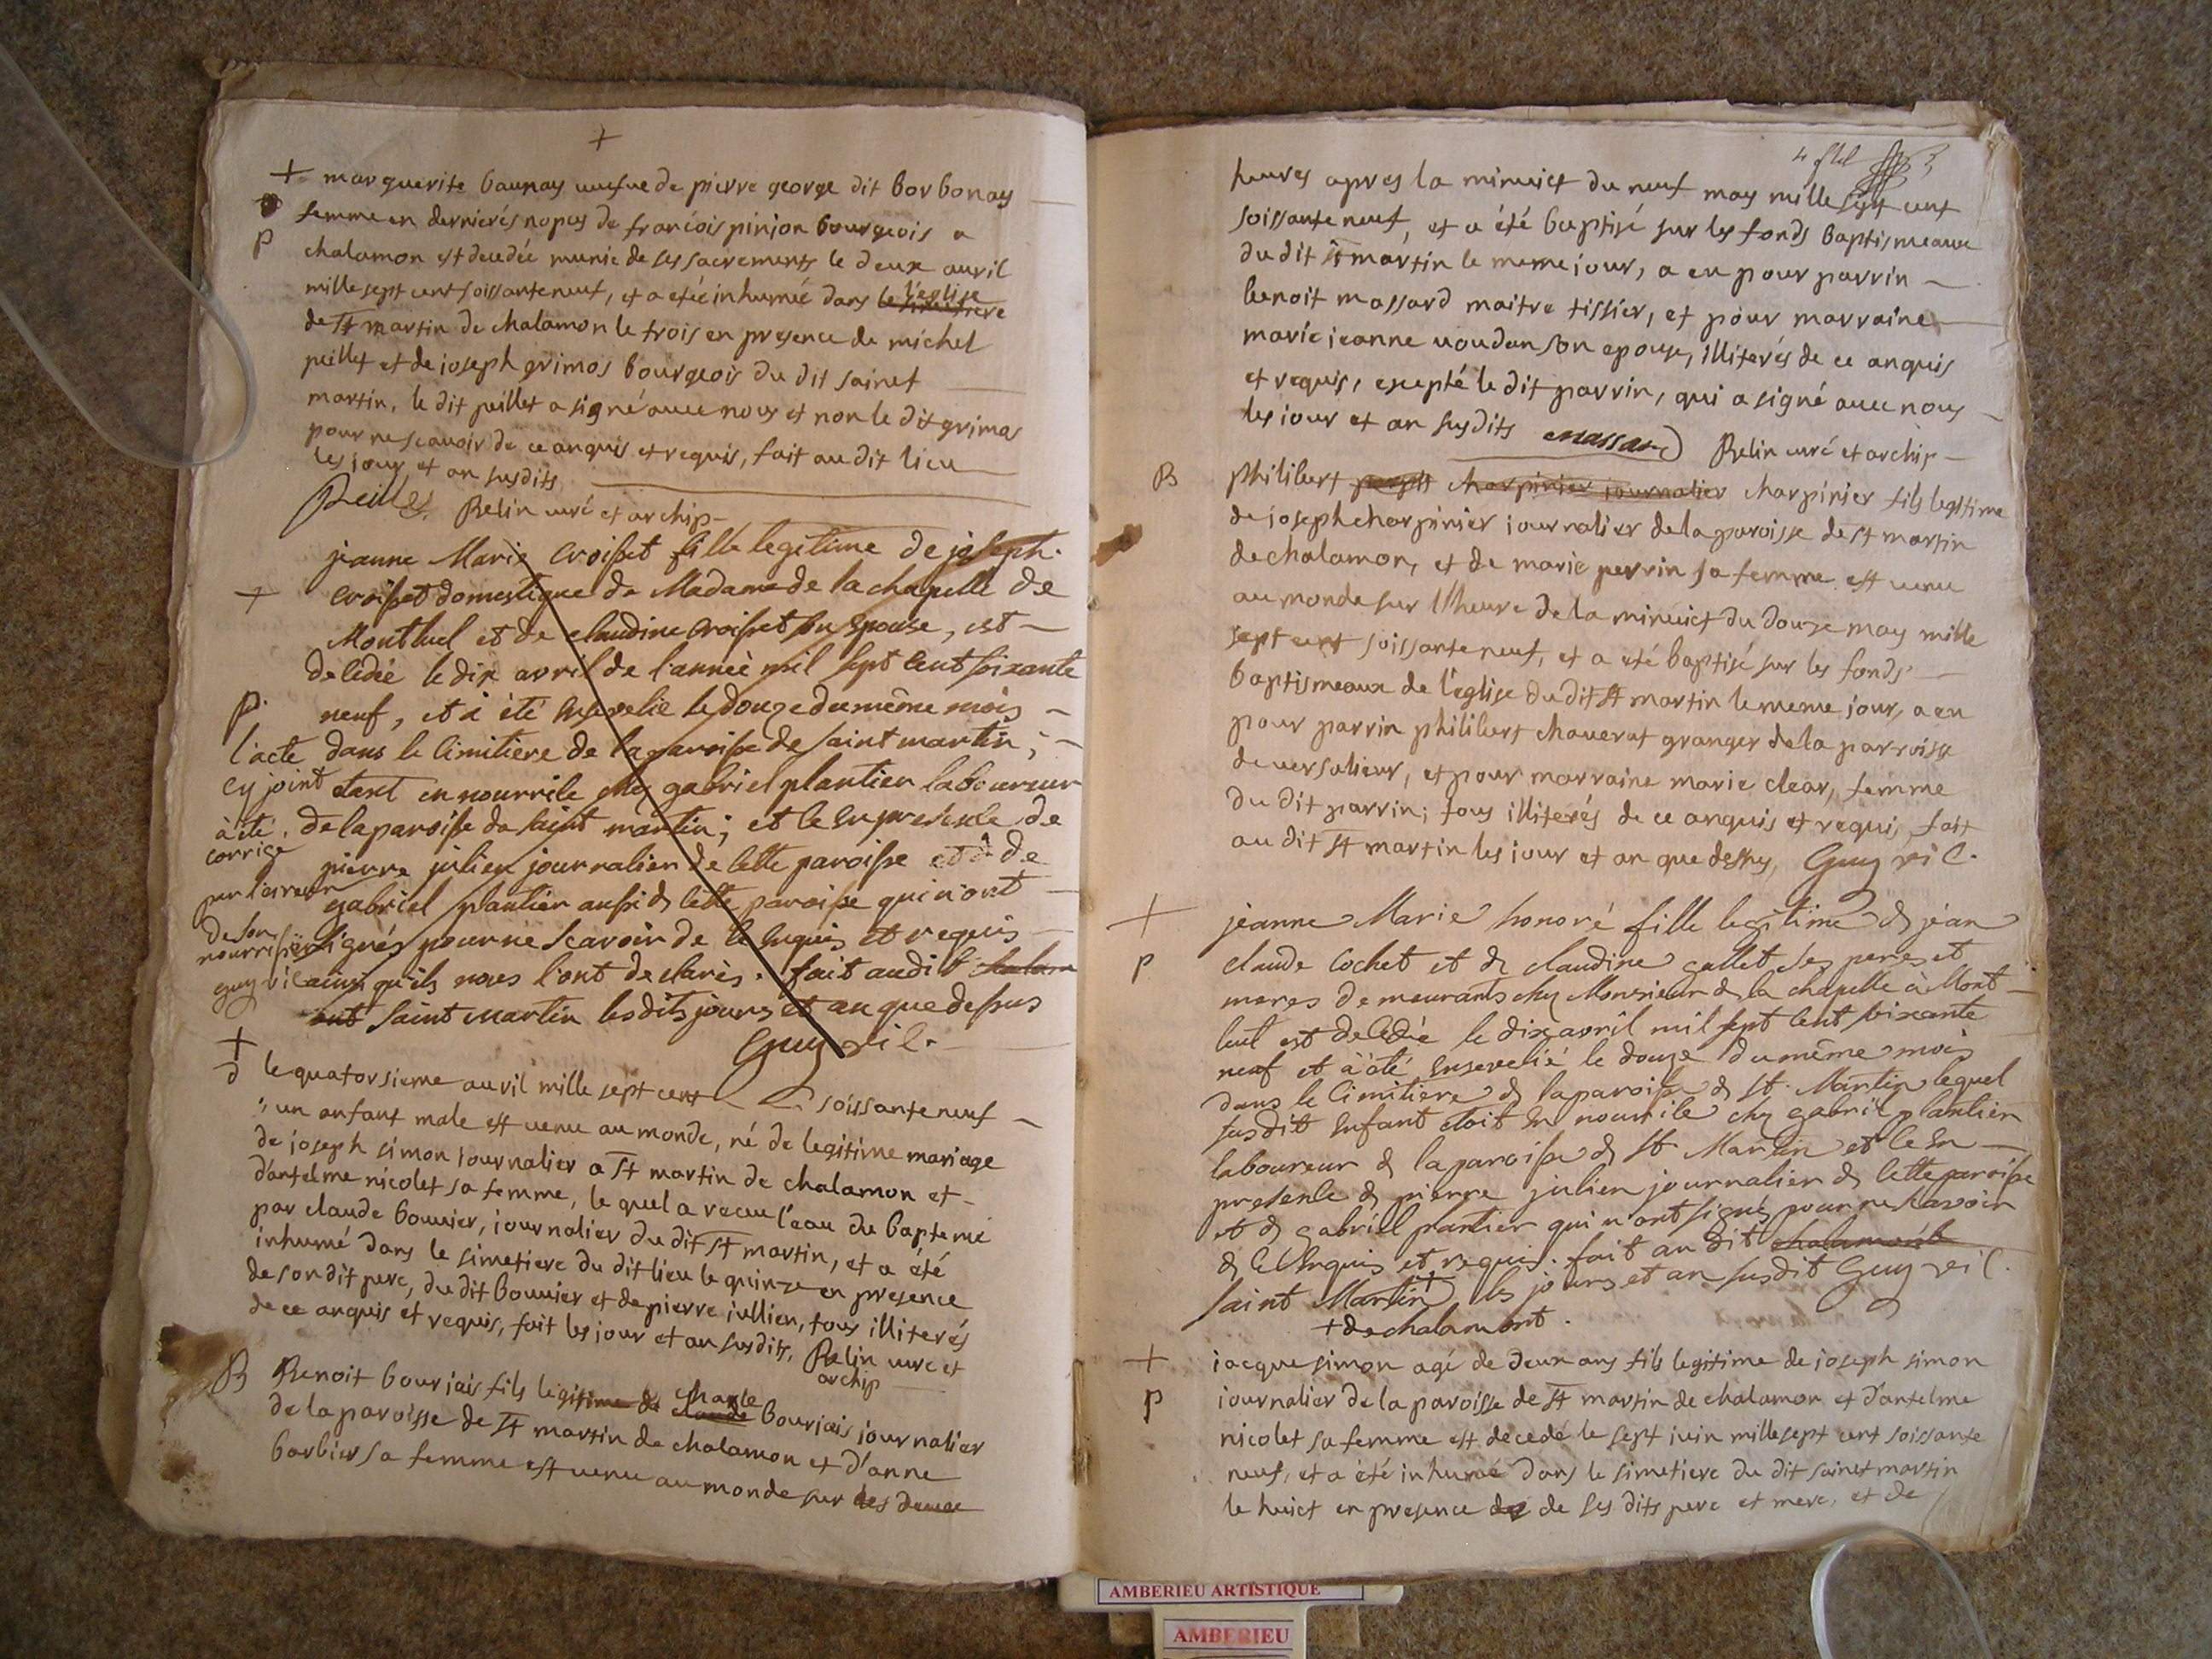 +
+ marguerite baunay veufve de pierre george dit borbonay
femme en dernierés nopces de francois pinjon bourgeois a
p chalamon est decedée munie de ses sacrements le deux avril
mille sept cent soissante neuf, et a etée inhumée dans l'eglise
de st martin de chalamon le trois en presence de michel
peillet et de joseph grimos bourgeois du dit sainct
martin, le dit peillet a signé avec nous et non le dit grimas
pour ne scavoir de ce anquis et requis, fait au dit lieu
les jour et an susdits
Peillet Relin curé et archip-
jeanne Marie Croisset fille legitime de joseph
+ Croisset domestique de Madame de la chapelle de
Montluel et de claudine Croisset son Epouse, est
decedée le dix avril de l'annèe mil sept cent soixante
p. neuf, et à été Ensevelie le douze du même mois
l'acte dans le cimitiere de la paroisse de saint martin ;
cy joint etant en nourrice chez gabriel plantier laboureur
à été de la paroisse de saint martin ; et ce En presence de
corrigé
pierre julien journalier de cette paroisse et de
par l'aveu
gabriel plantier aussi de cette paroise qui n'ont
de son
nourrissier signés pour ne scavoir de ce Enquis et requis
guy vic ainsy qu'ils nous l'ont declarès . fait audit chalam
ont saint Martin les dits jours et an que dessus
Guy vic.
+
d le quatorsieme avril mille sept cent soissante neuf
un anfant male est venu au monde, né de legitime mariage
de joseph simon journalier a st martin de chalamon et
d'antelme nicolet sa femme, le quel a recu l'eau du bapteme
par claude bouvier, journalier du dit st martin, et a été
inhumé dans le simetiere du dit lieu le quinze en presence
de son dit pere, du dit bouvier et de pierre jullien, tous illiterés
de ce anquis et requis, fait les jour et an susdits, Relin curé et
archip
B Benoit bourjais fils legitime de charle bourjais journalier
de la paroisse de st martin de chalamon et d'anne
barbier sa femme est venu au monde sur les deuxe
4 3
heures apres la minuict du neuf may mille sept cent
soissante neuf, et a été baptisé sur les fonds baptismeaux
du dit st martin le meme jour, a eu pour parrin
benoit massard maitre tissier, et pour marraine
marie jeanne voudan son epouse, illiterés de ce anquis
et requis, excepté le dit parrin, qui a signé avec nous
les jour et an susdits Massard Relin curé et archip-
B philibert charpinier journalier charpinier fils legitime
de joseph charpinier journalier de la paroisse de st martin
de chalamon, et de marie perrin sa femme est venu
au monde sur l'heure de la minuict du douze may mille
sept cent soissante neuf, et a eté baptisé sur les fonds
baptismeaux de l'eglise du dit st martin le meme jour, a eu
pour parrin philibert chaverat granger de la parroisse
de versalieux, et pour marraine marie clear, femme
du dit parrin ; tous illiterés de ce anquis et requis, fait
au dit st martin les jour et an que dessus, Guy vic.
+ jeanne Marie honoré fille legitime de jean
p claude Cochet et de claudine gallet ses peres et
meres demeurants chez Monsieur de la chapelle à Mont-
luel est decedée le dix avril mil sept cent soixante
neuf et à été Ensevelié le douze du même mois
dans le Cimitiere de la paroisse de st. Martin lequel
susdit Enfant etoit En nourrice chez gabriel plantier
laboureur de la paroisse de st. Martin et ce En
presence de pierre julien journalier de cette paroisse
et de gabriel plantier qui n'ont signés pour ne scavoir
de ce Enquis et requis. fait au dit chalamont
saint Martin + les jours et an susdit Guy vic.
+ de chalamont.
+ jacque simon agé de deux ans fils legitime de joseph simon
p journalier de la paroisse de st martin de chalamon et d'antelme
nicolet sa femme est decedé le sept juin mille sept cent soissante
neuf, et a été inhumé dans le simetiere du dit sainct martin
le huict en presence de ses dits pere et mere, et de
AMBERIEU ARTISTIQUE
AMBERIEU